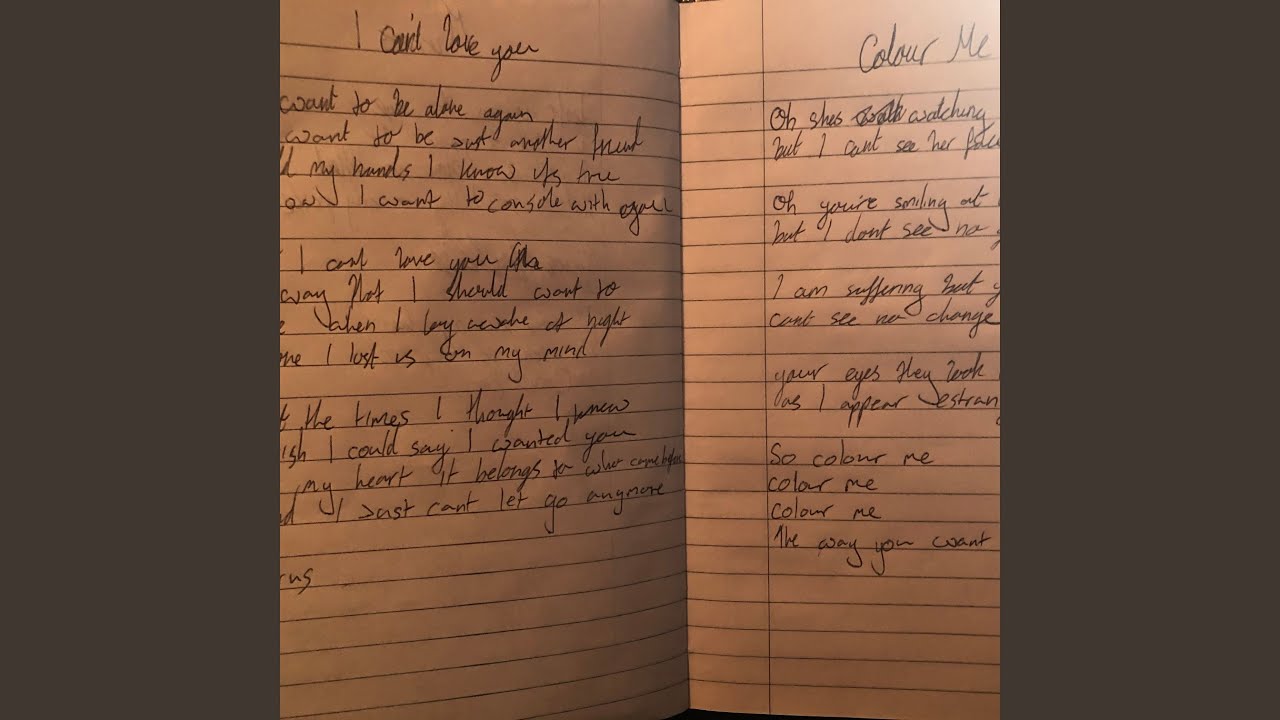 I Can't love you
want to be alone again
want to be just another friend
my hands I know its true
I want to console with
I cant love you
way that I should want to
when I lay awake at night
I lost us on my mind
the times I thought I knew
I could say I wanted you
my heart it belongs to who came before
I just cant let go anymore
rus
Colour Me
Oh shes watching
but I cant see her face
Oh you're smiling at
but I dont see no
I am suffering but y
cant see no change
your eyes they look
as I appear estran
So colour me
colour me
colour me
The way you want